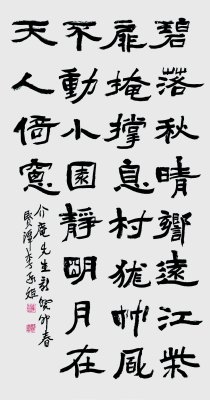 碧落秋晴響遠江柴
扉掩撑息村狵艸風
不動小園靜明月在
天人倚窓
介庵先生 癸卯春